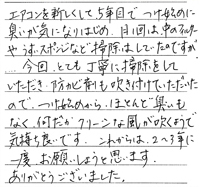 エアコンを新しくして5年目でつけ始めに
臭いが気になりはじめ、月1回は中のフィルター
やうす、スポンジなど掃除はしていたのですが
…今回、とても丁寧に掃除をして
いただき、防カビ剤も吹き付けていただいた
ので、つけ始めから、ほとんど臭いも
なく、何だかクリーンな風が吹くようで
気持ち良いです。これからは、2〜3年に
一度、お願いしようと思います。
ありがとうございました。